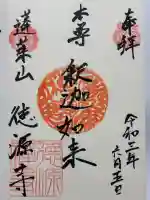 奉拝
令和三年
六月五日
本尊
釈迦如来
蓬莱山
徳源寺